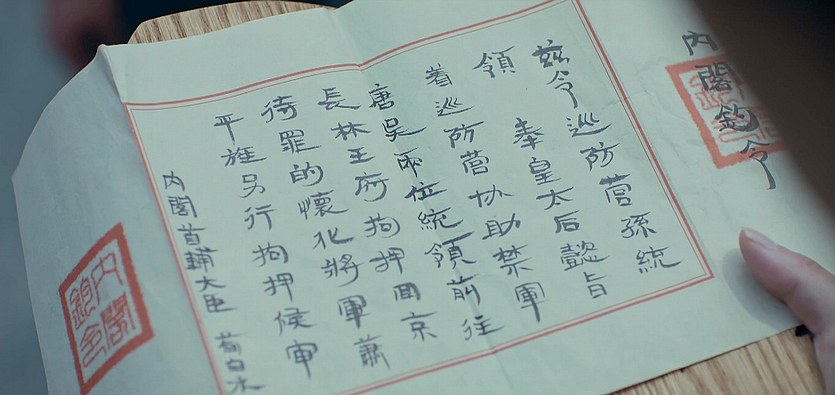 内閣鈞令
兹令巡防营孫統
領 奉皇太后懿旨
着巡防营协助禁軍
唐吴兩位統領前往
長林王府拘押回京
待罪的懷化將軍蕭
平旌另行拘押候审
内閣首輔大臣 荀白水
内閣鈞令